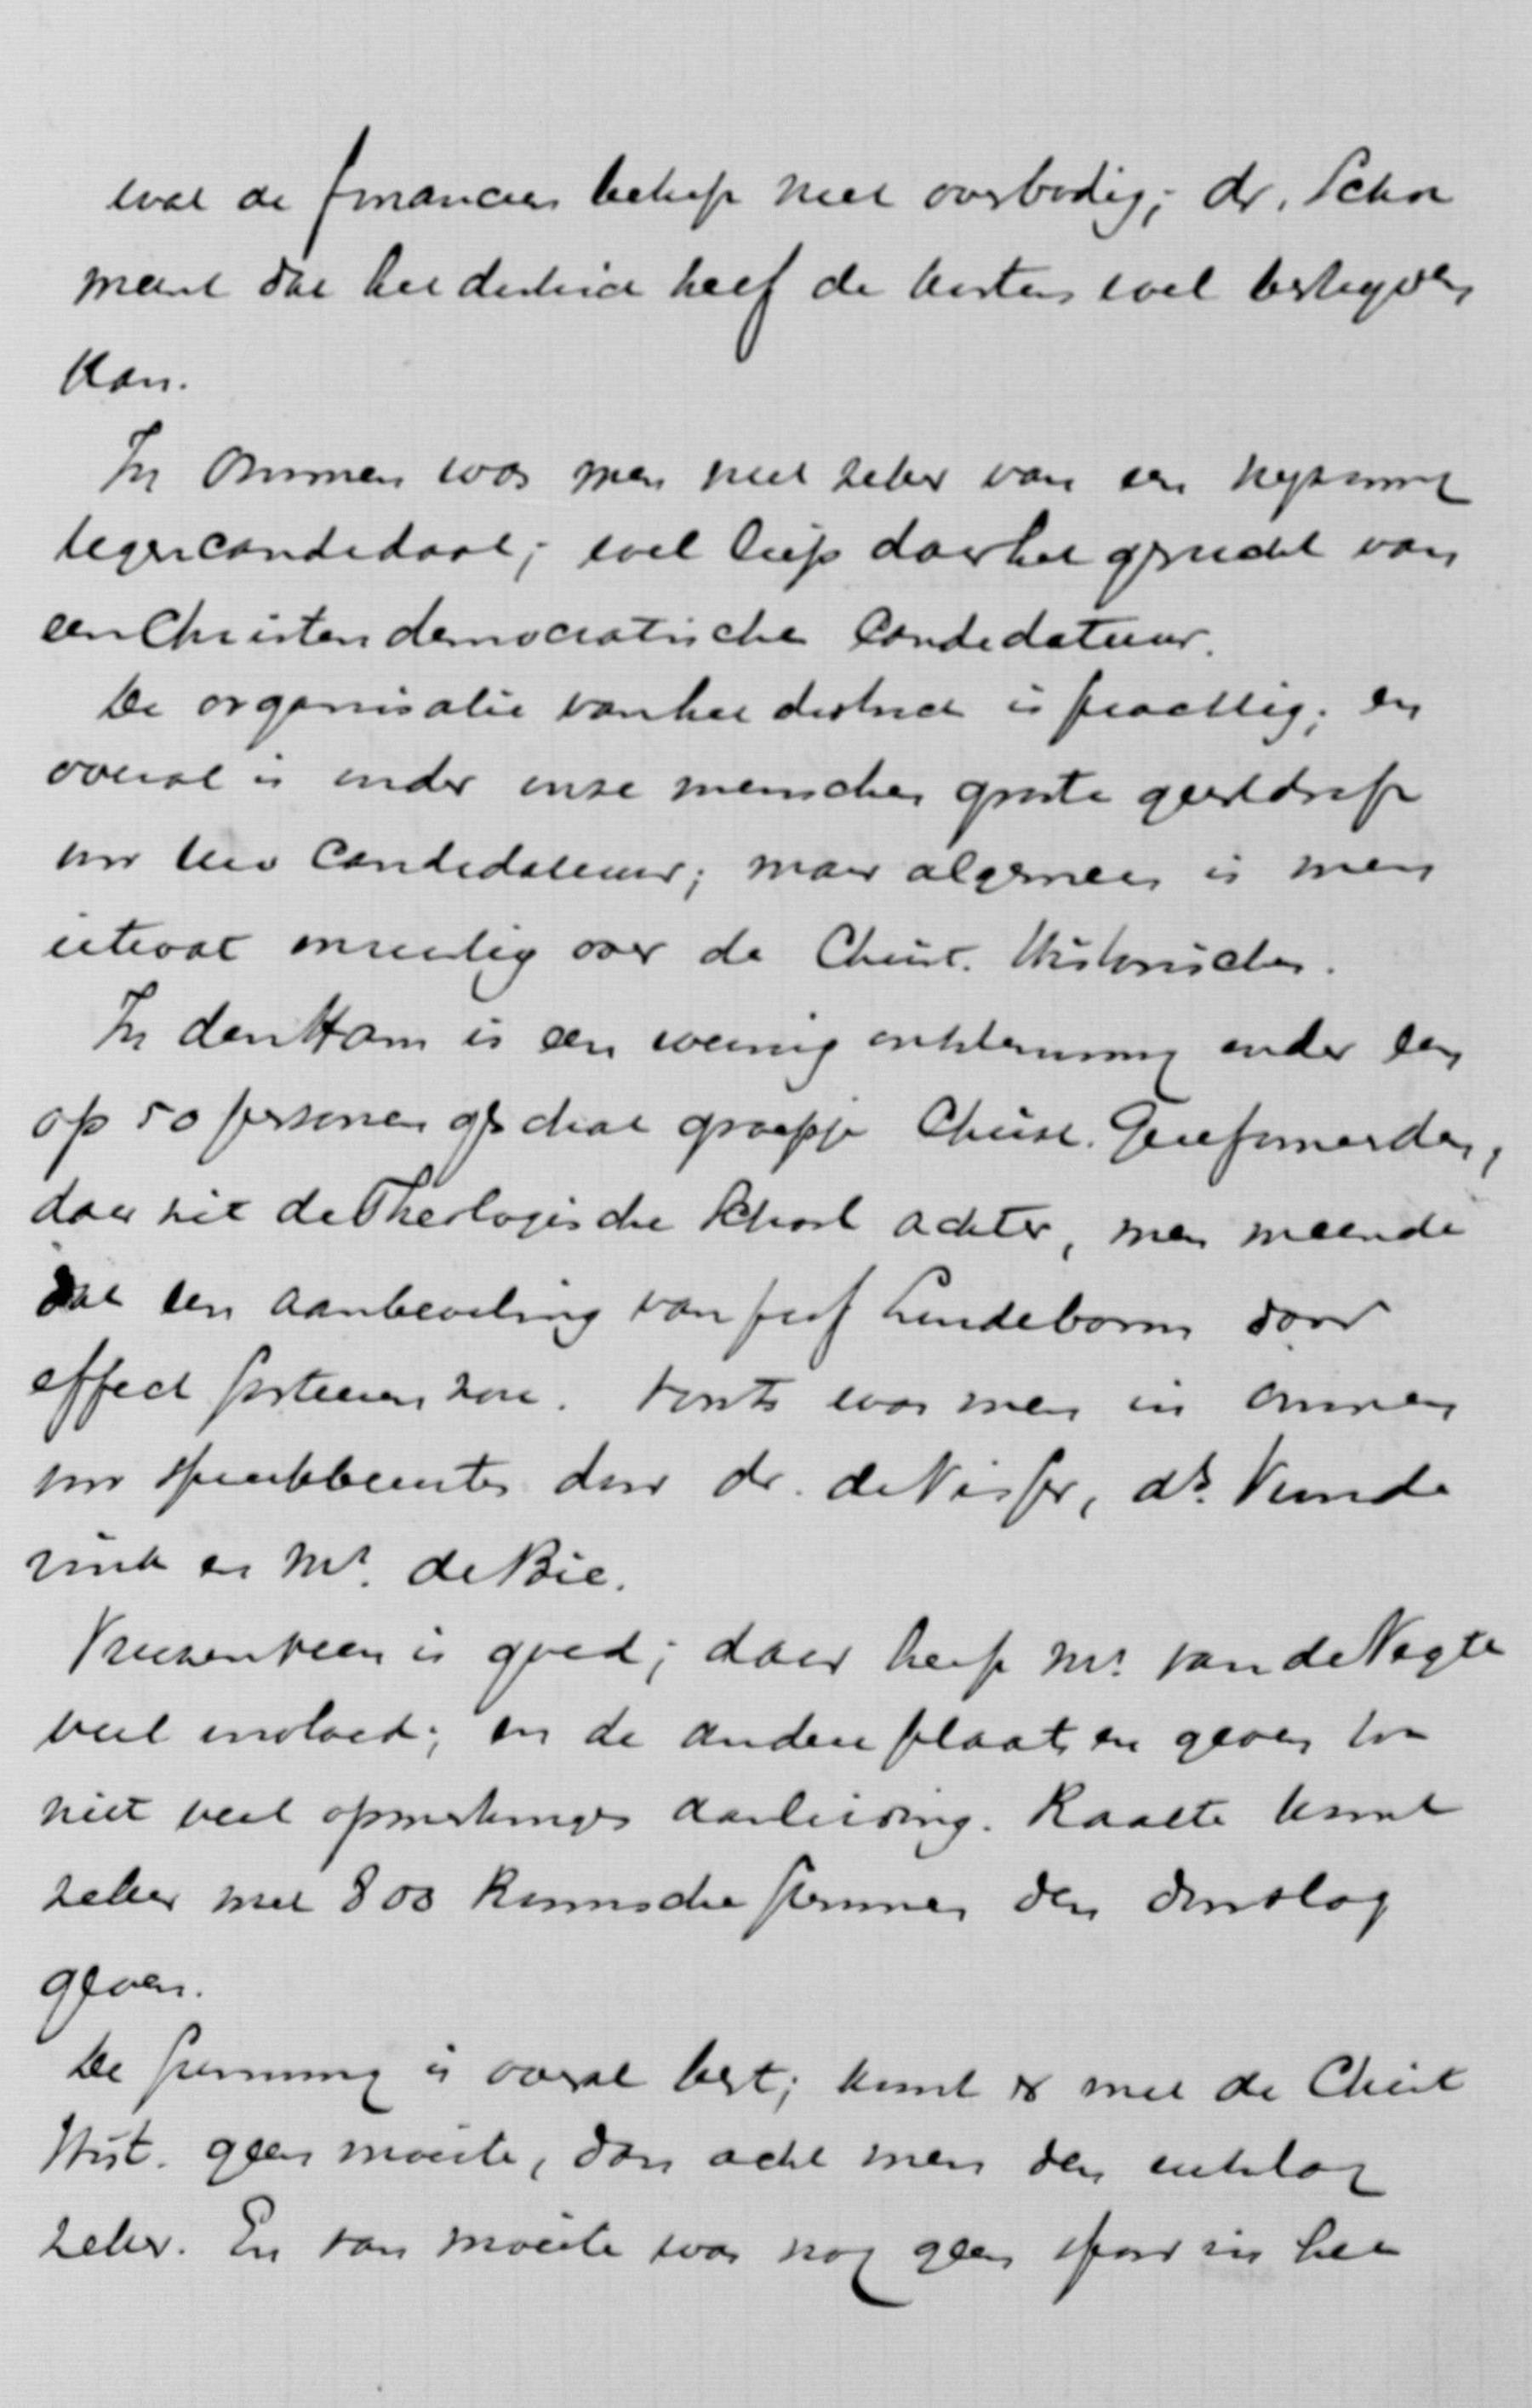 wat de financien betreft niet overbodig; dr. Schok
meent dat het district heeft de kosten wel bestrijden
kan.
In Ommen was men niet zeker van een
tegencandidaat; wel liep daar het gerucht van
een Christen democratische Candidatuur.
De organisatie van het district is prachtig; en
overal is onder onze menschen groote geestdrift
voor Uw Candidatuur; maar algemeen is men
ietwat onrustig over de Christ. Historischen.
In den Ham is een weinig ontstemming onder een
op 50 personen geschat groepje Christ. Gereformeerden,
daar zit de Theologische School achter, men meende
dat een aanbeveling van prof Lindeboom daar
effect sorteeren zou. Voorts was men in Ommen
voor spreekbeurten door dr. de Visser, ds.
en Mr. de Bie.
Vriezenveen is goed; daar heeft Mr. van de Vegte
veel invloed; en de andere plaatsen geven tot
niet veel opmerkingen aanleiding. Raalte komt
zeker met 800 Roomsche stemmen den doorslag
geven.
De stemming is overal best; komt er met de Christ
Hist. geen moeite, dan acht men den uitslag
zeker. En van moeite was nog geen spoor in het